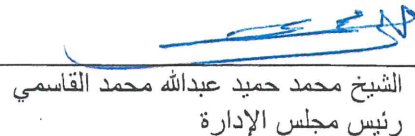 الشيخ محمد حميد عبدالله محمد القاسمي
رئيس مجلس الإدارة